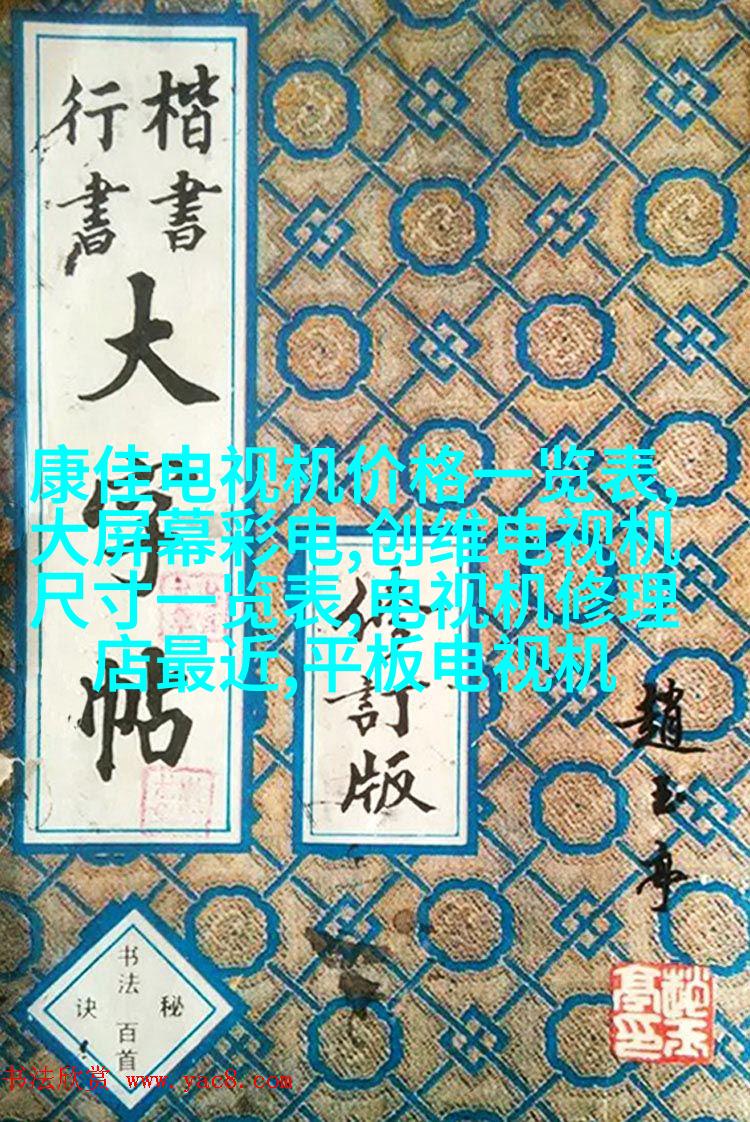 楷書
行書
大字帖
康佳电视机价格一览表,
大屏幕彩电,创维电视机
尺寸一览表,电视机修理
店最近,平板电视机
修訂版
趙玉亭
书法百首
秘诀
书法欣赏 www.yac8.com